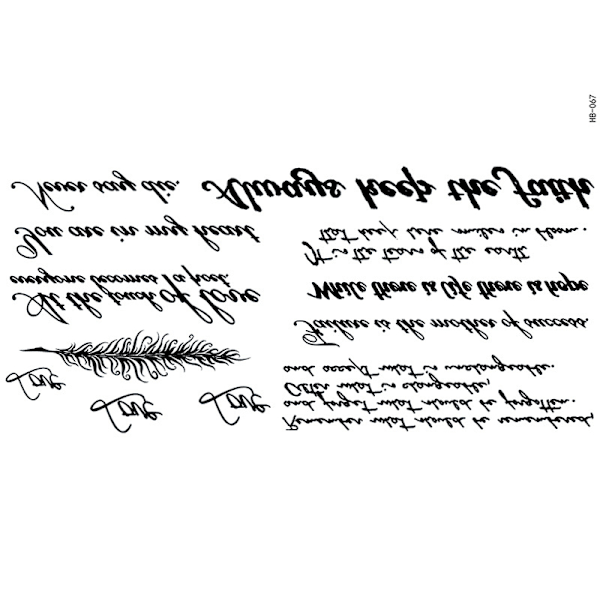 HB-067
Never say die.
Always keep the faith
You are in my heart
It is the tears of the earth
that keep here smiles in bloom.
At the touch of love
everyone becomes a poet.
While there is life there is hope
Failure is the mother of success
Love
Love
Love
Remember what should be remembered,
and forget what should be forgotten.
Alter what is changeable,
and accept what is unchangeable.